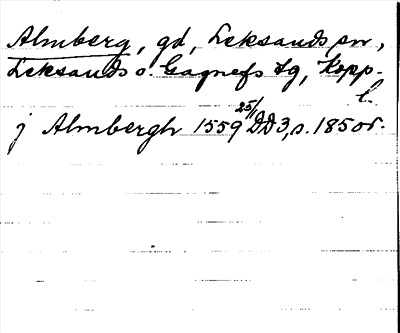 Almberg, gd, Leksands sn,
Leksands o. Gagnefs tg, Kopp.
l.
j Almbergh 1559 25/1 DD3, s. 185 or.